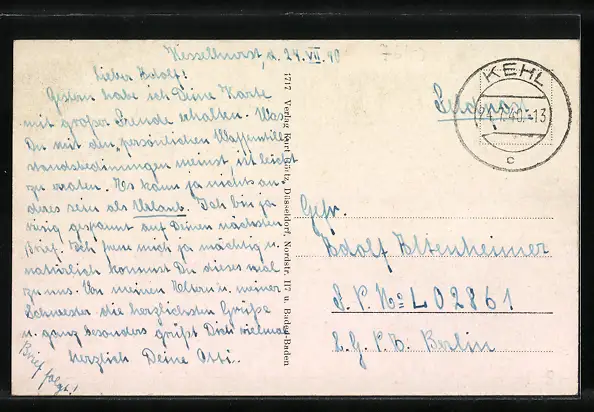 Kesselhurst, d. 24. VII. 40
Lieber Adolf!
Gestern habe ich Deine Karte
mit großer Freude erhalten. Was
Du mit den „persönlichen Waffenstill-
standsbedinnungen meinst, ist leicht
zu eraten. Es kann ja nichts an-
deres sein als Urlaub. Ich bin ja
riesig gespannt auf Deinen nächsten
Brief. Ich freue mich ja mächtig u.
natürlich kommst Du dieses mal
zu uns. Von meinen Eltern u. meiner
Schwester die herzlichsten Grüße
u. ganz besonders grüßt Dich vielmal
herzlich Deine
Brief folgt!
1717 Verlag Kurt Döltz, Düsseldorf, Nordstr. 117 u. Baden-Baden
Feldpost
KEHL
24.7.40.-13
c
Gefr.
Adolf Altenheimer
F. P. No L 02861
L. G. P. A. Berlin